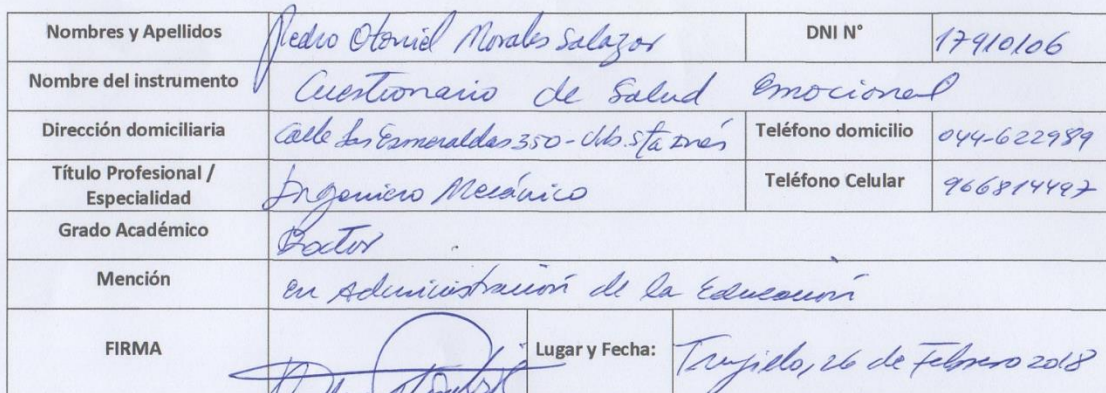 Nombres y Apellidos Pedro Otoniel Morales Salazar DNI N° 17910106
Nombre del instrumento Cuestionario de Salud Emocional
Dirección domiciliaria Calle Las Esmeraldas 350 - Urb. Sta Inés Teléfono domicilio 044-622989
Título Profesional /
Especialidad Ingeniero Mecánico Teléfono Celular 966814497
Grado Académico Doctor
Mención en Administración de la Educación
FIRMA Lugar y Fecha: Trujillo, 26 de Febrero 2018